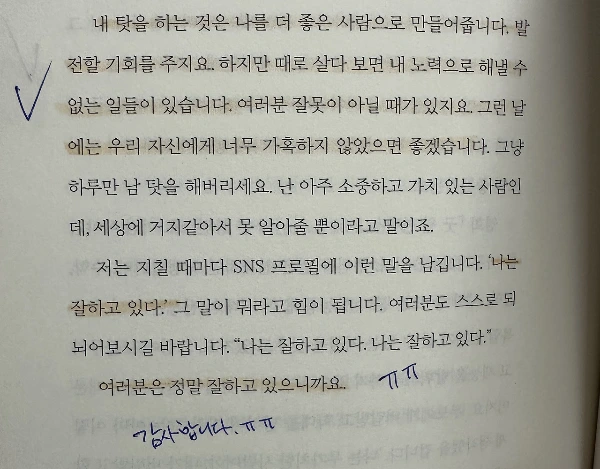 내 탓을 하는 것은 나를 더 좋은 사람으로 만들어줍니다. 발
전할 기회를 주지요. 하지만 때로 살다 보면 내 노력으로 해낼 수
없는 일들이 있습니다. 여러분 잘못이 아닐 때가 있지요. 그런 날
에는 우리 자신에게 너무 가혹하지 않았으면 좋겠습니다. 그냥
하루만 남 탓을 해버리세요. 난 아주 소중하고 가치 있는 사람인
데, 세상에 거지같아서 못 알아줄 뿐이라고 말이죠.
저는 지칠 때마다 SNS 프로필에 이런 말을 남깁니다. ‘나는
잘하고 있다.’ 그 말이 뭐라고 힘이 됩니다. 여러분도 스스로 되
뇌어보시길 바랍니다. “나는 잘하고 있다. 나는 잘하고 있다.”
여러분은 정말 잘하고 있으니까요. ㅠㅠ
감사합니다. ㅠㅠ